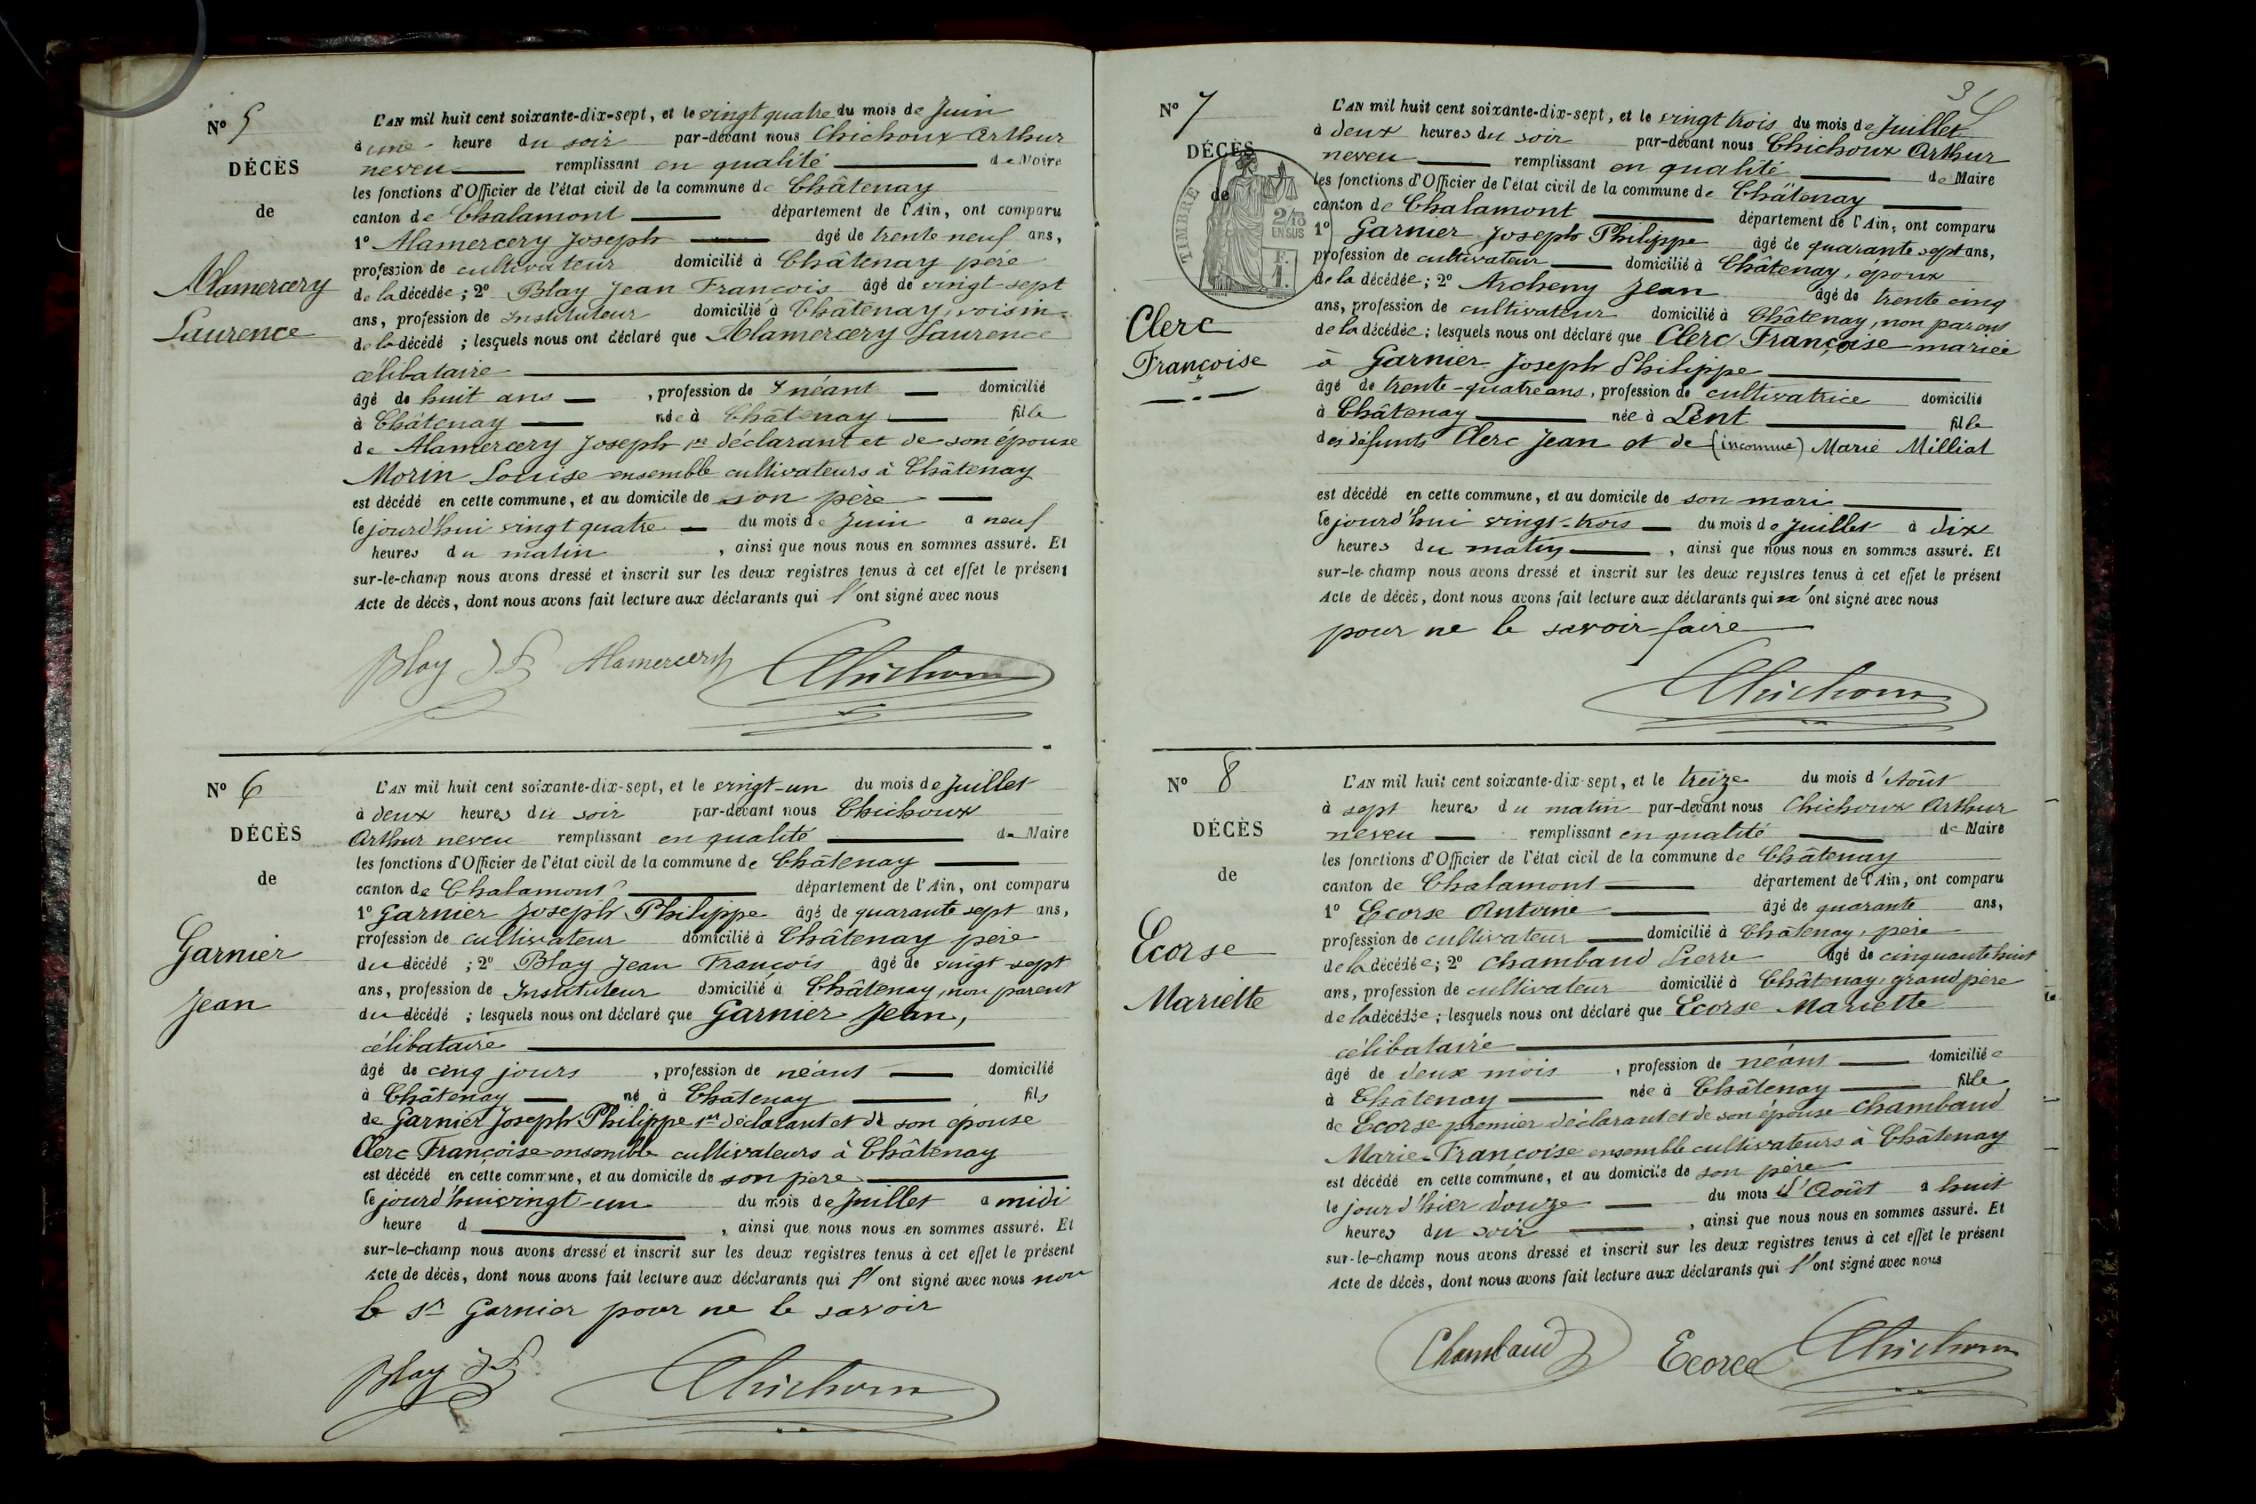 N° 5
DÉCÈS
de
Alamercery
Laurence
L'AN mil huit cent soixante-dix-sept, et le vingt quatre du mois de Juin
à une heure du soir par-devant nous Chichoux Arthur
neveu remplissant en qualité de Maire
les fonctions d'Officier de l'état civil de la commune de Châtenay
canton de Chalamont département de l'Ain, ont comparu
1° Alamercery Joseph âgé de trente neuf ans,
profession de cultivateur domicilié à Châtenay père
de la décédée ; 2° Blay Jean François âgé de vingt-sept
ans, profession de Instituteur domicilié à Châtenay, voisin
de la décédé ; lesquels nous ont déclaré que Alamercery Laurence
célibataire
âgé de huit ans , profession de néant domicilié
à Châtenay née à Châtenay fille
de Alamercery Joseph 1er déclarant et de son épouse
Morin Louise ensemble cultivateurs à Châtenay
est décédé en cette commune, et au domicile de son père
le jourd'hui vingt quatre du mois de Juin a neuf
heures du matin , ainsi que nous nous en sommes assuré. Et
sur-le-champ nous avons dressé et inscrit sur les deux registres tenus à cet effet le présent
Acte de décès, dont nous avons fait lecture aux déclarants qui l'ont signé avec nous
Blay J F Alamercery Chichoux
N° 6
DÉCÈS
de
Garnier
Jean
L'AN mil huit cent soixante-dix-sept, et le vingt-un du mois de Juillet
à deux heures du soir par-devant nous Chichoux
Arthur neveu remplissant en qualité de Maire
les fonctions d'Officier de l'état civil de la commune de Châtenay
canton de Chalamont département de l'Ain, ont comparu
1° Garnier Joseph Philippe âgé de quarante sept ans,
profession de cultivateur domicilié à Châtenay père
du décédé ; 2° Blay Jean François âgé de vingt-sept
ans, profession de Instituteur domicilié à Châtenay, non parent
du décédé ; lesquels nous ont déclaré que Garnier Jean,
célibataire
âgé de cinq jours , profession de néant domicilié
à Châtenay né à Châtenay fils
de Garnier Joseph Philippe 1er déclarant et de son épouse
Clerc Françoise ensemble cultivateurs à Châtenay
est décédé en cette commune, et au domicile de son père
le jourd'hui vingt-un du mois de Juillet a midi
heure d , ainsi que nous nous en sommes assuré. Et
sur-le-champ nous avons dressé et inscrit sur les deux registres tenus à cet effet le présent
Acte de décès, dont nous avons fait lecture aux déclarants qui l'ont signé avec nous non
le Sr Garnier pour ne le savoir
Blay J F Chichoux
N° 7
DÉCÈS
de
TIMBRE
2/10
EN SUS
F.
1.
Clerc
Françoise
L'AN mil huit cent soixante-dix-sept, et le vingt trois du mois de Juillet
à deux heures du soir par-devant nous Chichoux Arthur
neveu remplissant en qualité de Maire
les fonctions d'Officier de l'état civil de la commune de Châtenay
canton de Chalamont département de l'Ain, ont comparu
1° Garnier Joseph Philippe âgé de quarante sept ans,
profession de cultivateur domicilié à Châtenay, époux
de la décédée ; 2° Archeny Jean âgé de trente cinq
ans, profession de cultivateur domicilié à Châtenay, non parent
de la décédée ; lesquels nous ont déclaré que Clerc Françoise mariée
à Garnier Joseph Philippe
âgé de trente-quatre ans, profession de cultivatrice domicilié
à Châtenay née à Lent fille
des défunts Clerc Jean et de (inconnue) Marie Milliat
est décédé en cette commune, et au domicile de son mari
le jourd'hui vingt-trois du mois de Juillet à dix
heures du matin , ainsi que nous nous en sommes assuré. Et
sur-le-champ nous avons dressé et inscrit sur les deux registres tenus à cet effet le présent
Acte de décès, dont nous avons fait lecture aux déclarants qui n'ont signé avec nous
pour ne le savoir faire
Chichoux
N° 8
DÉCÈS
de
Ecorse
Mariette
L'AN mil huit cent soixante-dix-sept, et le treize du mois d'Août
à sept heures du matin par-devant nous Chichoux Arthur
neveu remplissant en qualité de Maire
les fonctions d'Officier de l'état civil de la commune de Châtenay
canton de Chalamont département de l'Ain, ont comparu
1° Ecorse Antoine âgé de quarante ans,
profession de cultivateur domicilié à Châtenay, père
de la décédée ; 2° Chambaud Pierre âgé de cinquante huit
ans, profession de cultivateur domicilié à Châtenay, grand père
de la décédée ; lesquels nous ont déclaré que Ecorse Mariette
célibataire
âgé de deux mois , profession de néant domiciliée
à Châtenay née à Châtenay fille
de Ecorse premier déclarant et de son épouse Chambaud
Marie-Françoise ensemble cultivateurs à Châtenay
est décédé en cette commune, et au domicile de son père
le jour d'hier douze du mois d'Août à huit
heures du soir , ainsi que nous nous en sommes assuré. Et
sur-le-champ nous avons dressé et inscrit sur les deux registres tenus à cet effet le présent
Acte de décès, dont nous avons fait lecture aux déclarants qui l'ont signé avec nous
Chambaud Ecorce Chichoux